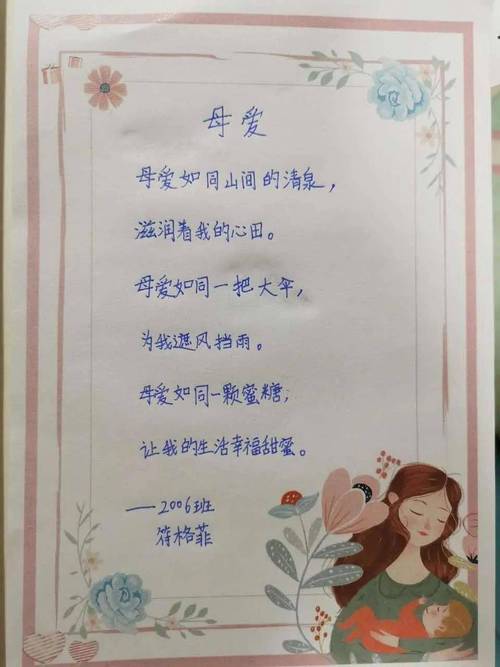 母爱
母爱如同山间的清泉，
滋润着我的心田。
母爱如同一把大伞，
为我遮风挡雨。
母爱如同一颗蜜糖；
让我的生活幸福甜蜜。
——2006班
符格菲